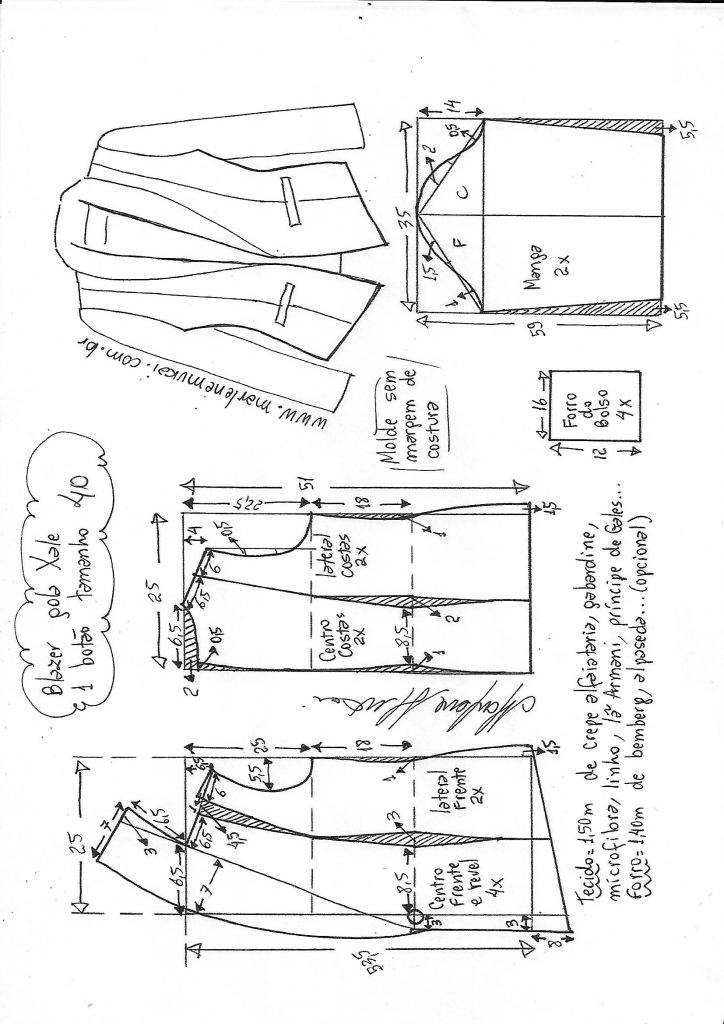 Blazer gola Xale
1 botão - tamanho 40
www.marlenemukai.com.br
Molde sem
margem de
costura
14
35
0,5
2
C
F
1,5
1
Manga
2x
59
5,5
5,5
16
Forro
do
Bolso
4x
12
51
22,5
18
25
4
0,5
6
6,5
6,5
0,5
2
lateral
costas
2x
Centro
Costas
2x
8,5
1
2
1
1,5
25
7
6,5
3
6,5
25
18
5,5
6
6,5
4,5
7
1
3
lateral
Frente
2x
8,5
Centro
Frente
e revel
4x
3
3
1,5
8
Tecido = 1,50m de crepe alfaiataria, gabardine,
microfibra, linho, lã Armani, príncipe de Gales...
Forro = 1,40m de bemberg, alpaseda... (opcional)